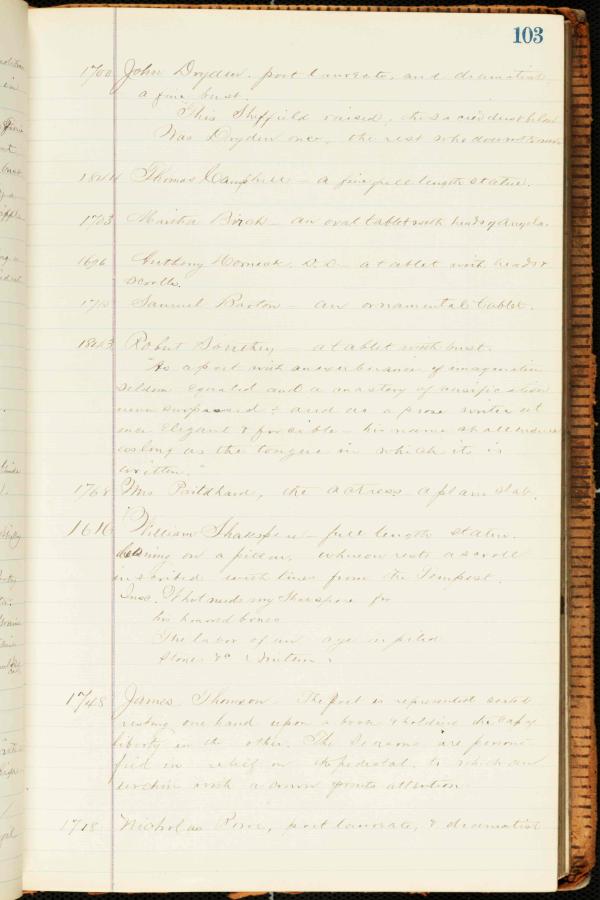 103
1700 John Dryden. poet laureate, and dramatist
a fine bust.
"This Sheffield raised, the sacred dust below
Was Dryden once, the rest who does not know
1844 Thomas Campbell - a fine full length statue.
1703 Martha Birch - an oval tablet with heads of angels.
1696 Anthony Horneck. D.D. - a tablet with heads &
scrolls.
1715 Samuel Barton - an ornamental tablet.
1843 Robert Southey - a tablet with bust.
"As a poet with an exuberance of imagination
seldom equaled and a mastery of versification
never surpassed & and as a prose writer at
once elegant & forcible - his name shall endure
as long as the tongue in which it is
written."
1768 Mrs Pritchard, the actress - a plain slab.
1616 William Shakspere - full length statue.
leaning on a pillar, whereon rests a scroll
inscribed with lines from the Tempest.
Insc. What needs my Shakspere for
his honored bones
The labor of an age in piled
stones &c (Milton)
1748 James Thomson - The Poet is represented seated
resting one hand upon a book & holding the cap of
liberty in the other. The Seasons are personi-
fied in relief on the pedestal, to which an
urchin with a crown points attention
1718 Nicholas Rowe, poet laureate, & dramatist